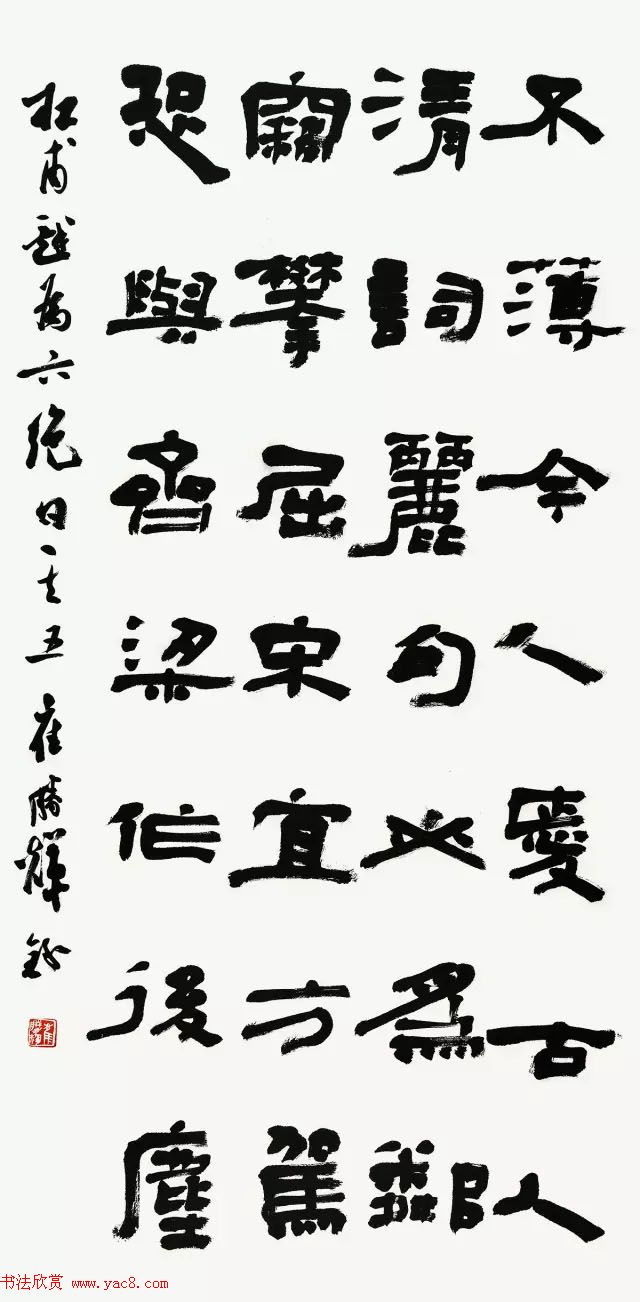 不薄今人愛古人
清詞麗句必爲鄰
竊攀屈宋宜方駕
恐與齊梁作後塵
杜甫戲為六絕句其五 崔勝輝錄
书法欣赏 www.yac8.com